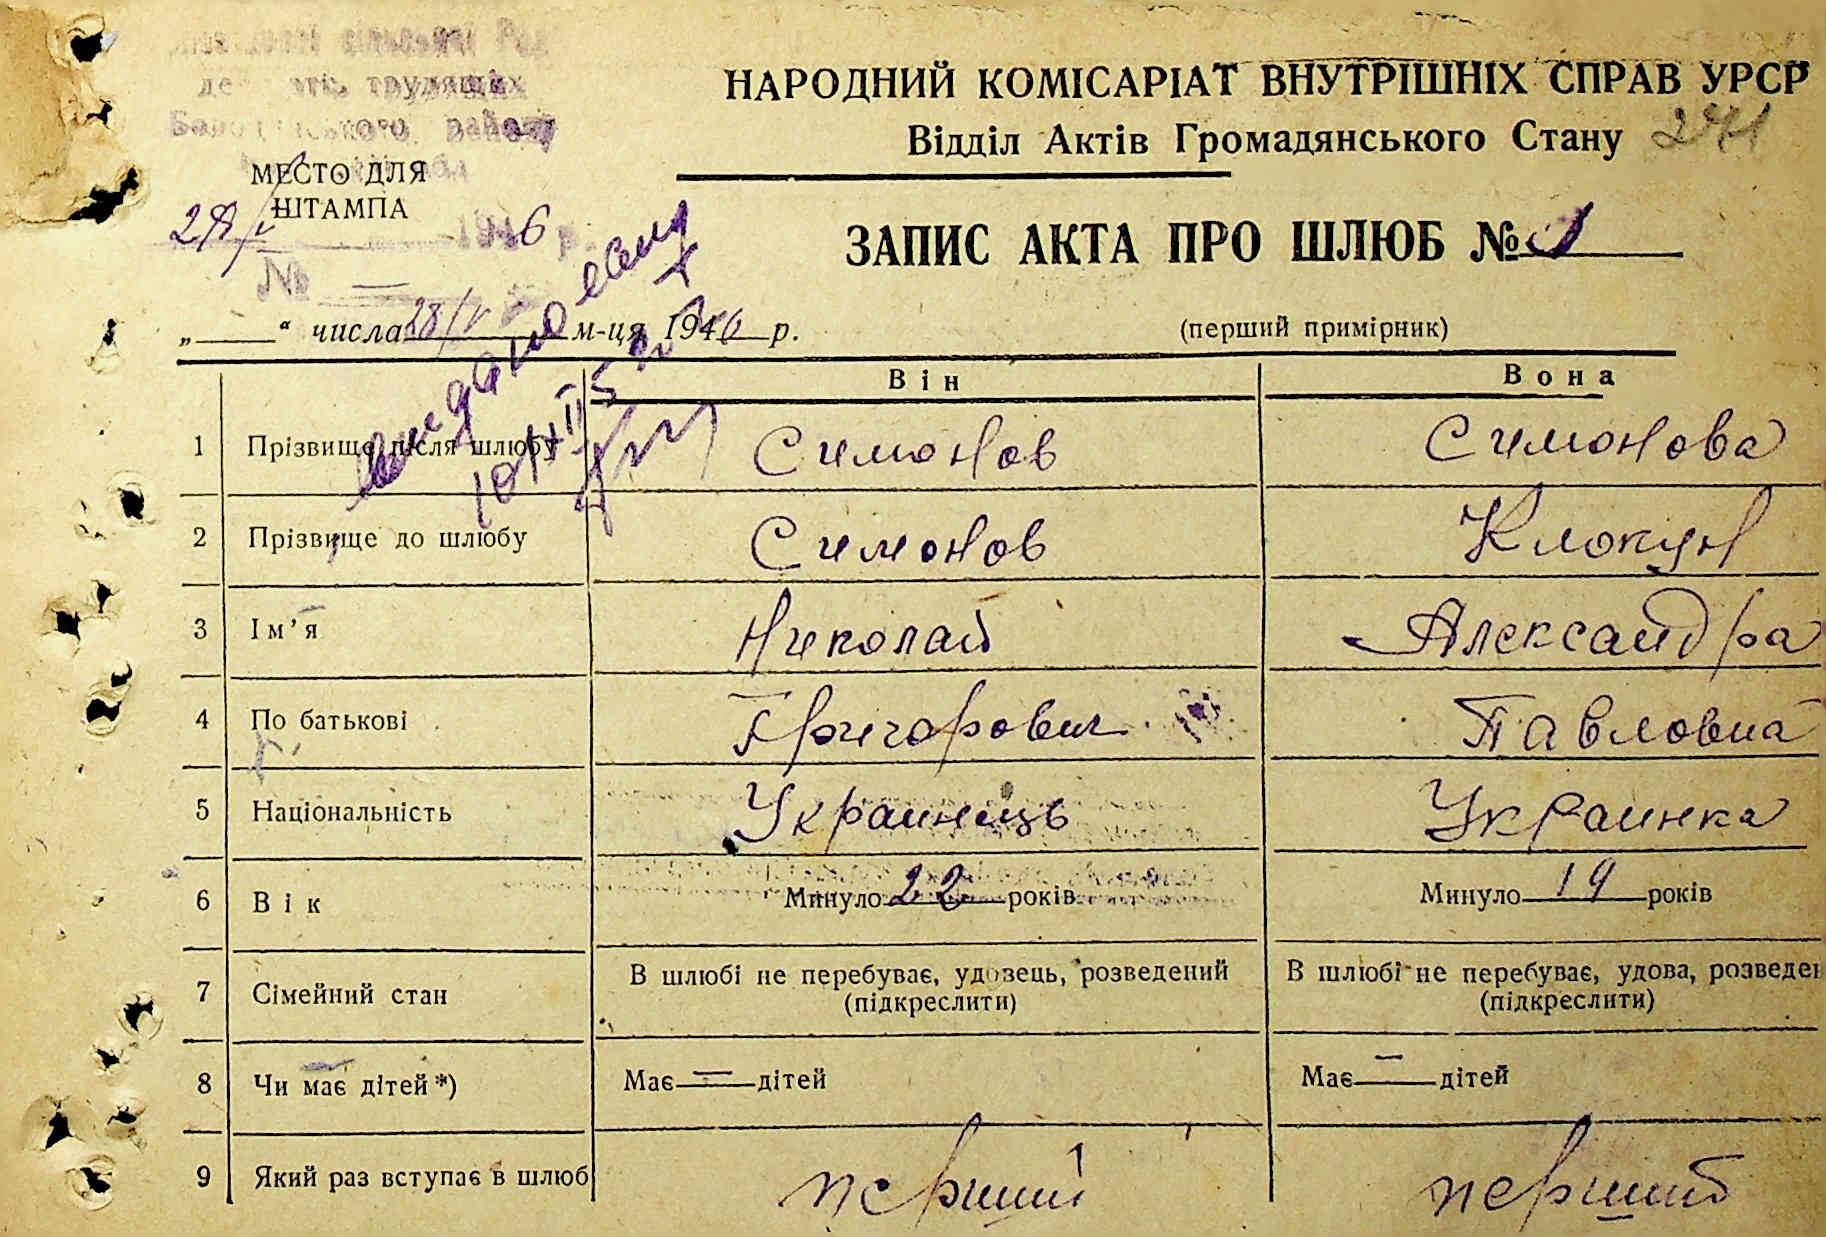 сільської Рад
трудящих
району
НАРОДНИЙ КОМІСАРІАТ ВНУТРІШНІХ СПРАВ УРСР
Відділ Актів Громадянського Стану 271
МЕСТО ДЛЯ
ШТАМПА
1946 р.
№ —
ЗАПИС АКТА ПРО ШЛЮБ № 1
„ “ числа 28/V м-ця 1946 р.
(перший примірник)
Він Вона
1 Прізвище після шлюбу Симонов Симонова
2 Прізвище до шлюбу Симонов Клокун
3 Ім’я Николай Александра
4 По батькові Григорович Павловна
5 Національність Украинець Украинка
6 Вік Минуло 22 років Минуло 19 років
7 Сімейний стан В шлюбі не перебуває, удовець, розведений В шлюбі не перебуває, удова, розведен
(підкреслити) (підкреслити)
8 Чи має дітей*) Має — дітей Має — дітей
9 Який раз вступає в шлюб перший перший